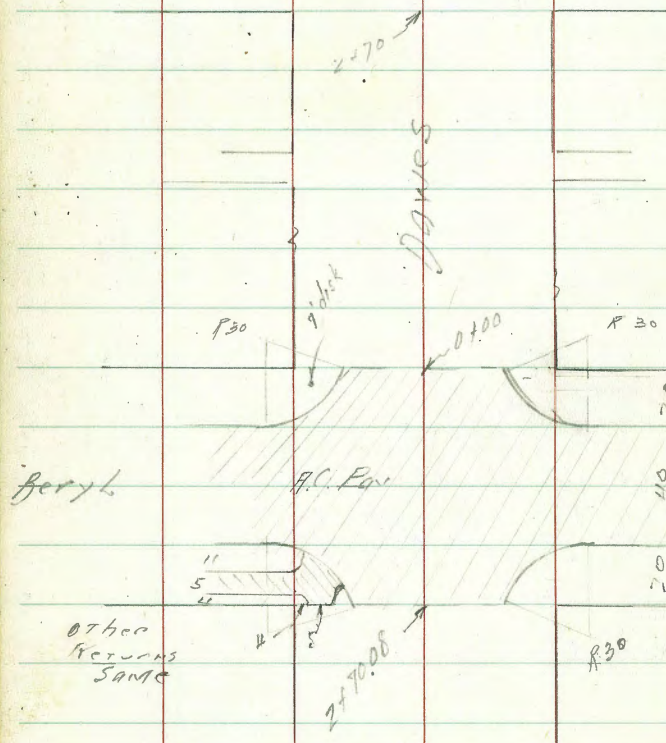 2+70
Dawes
disk
R30
0+00
R 30
Beryl
A.C. Pav
40
11
5
4
4
5
Other
Returns
Same
2+70.08
R30